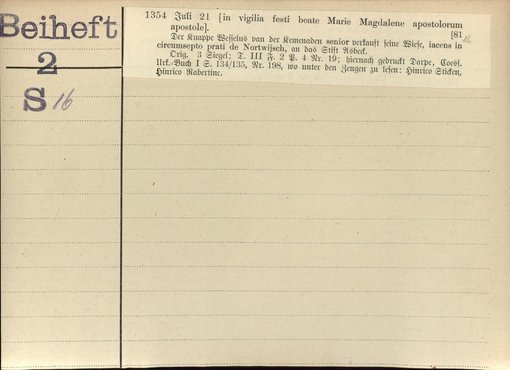 Beiheft
2
S 16
1354 Juli 21 [in vigilia festi beate Marie Magdalene apostolorum
apostole]. [81
16
Der Knappe Wesselus van der Kemenaden senior verkauft seine Wiese, iacens in
circumsepto prati de Nortwijsch, an das Stift Asbeck.
Orig. 3 Siegel; T. III F. 2 P. 4 Nr. 19; hiernach gedruckt Darpe, Coesf.
Urk.-Buch I S. 134/135, Nr. 198, wo unter den Zeugen zu lesen: Hinrico Sticken,
Hinrico Rabertine.